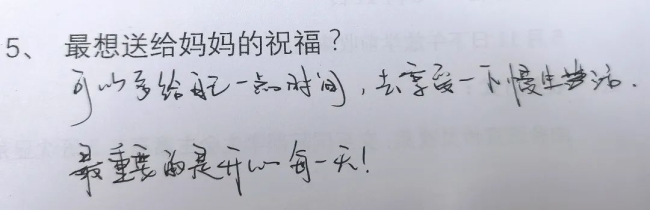 5、 最想送给妈妈的祝福？
可以多给自己一点时间，去享受一下慢生活.
最重要的是开心每一天！